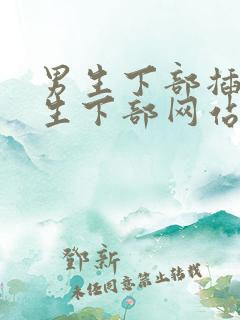 男生下部插
生下部网站
鄧新
未经同意禁止转载